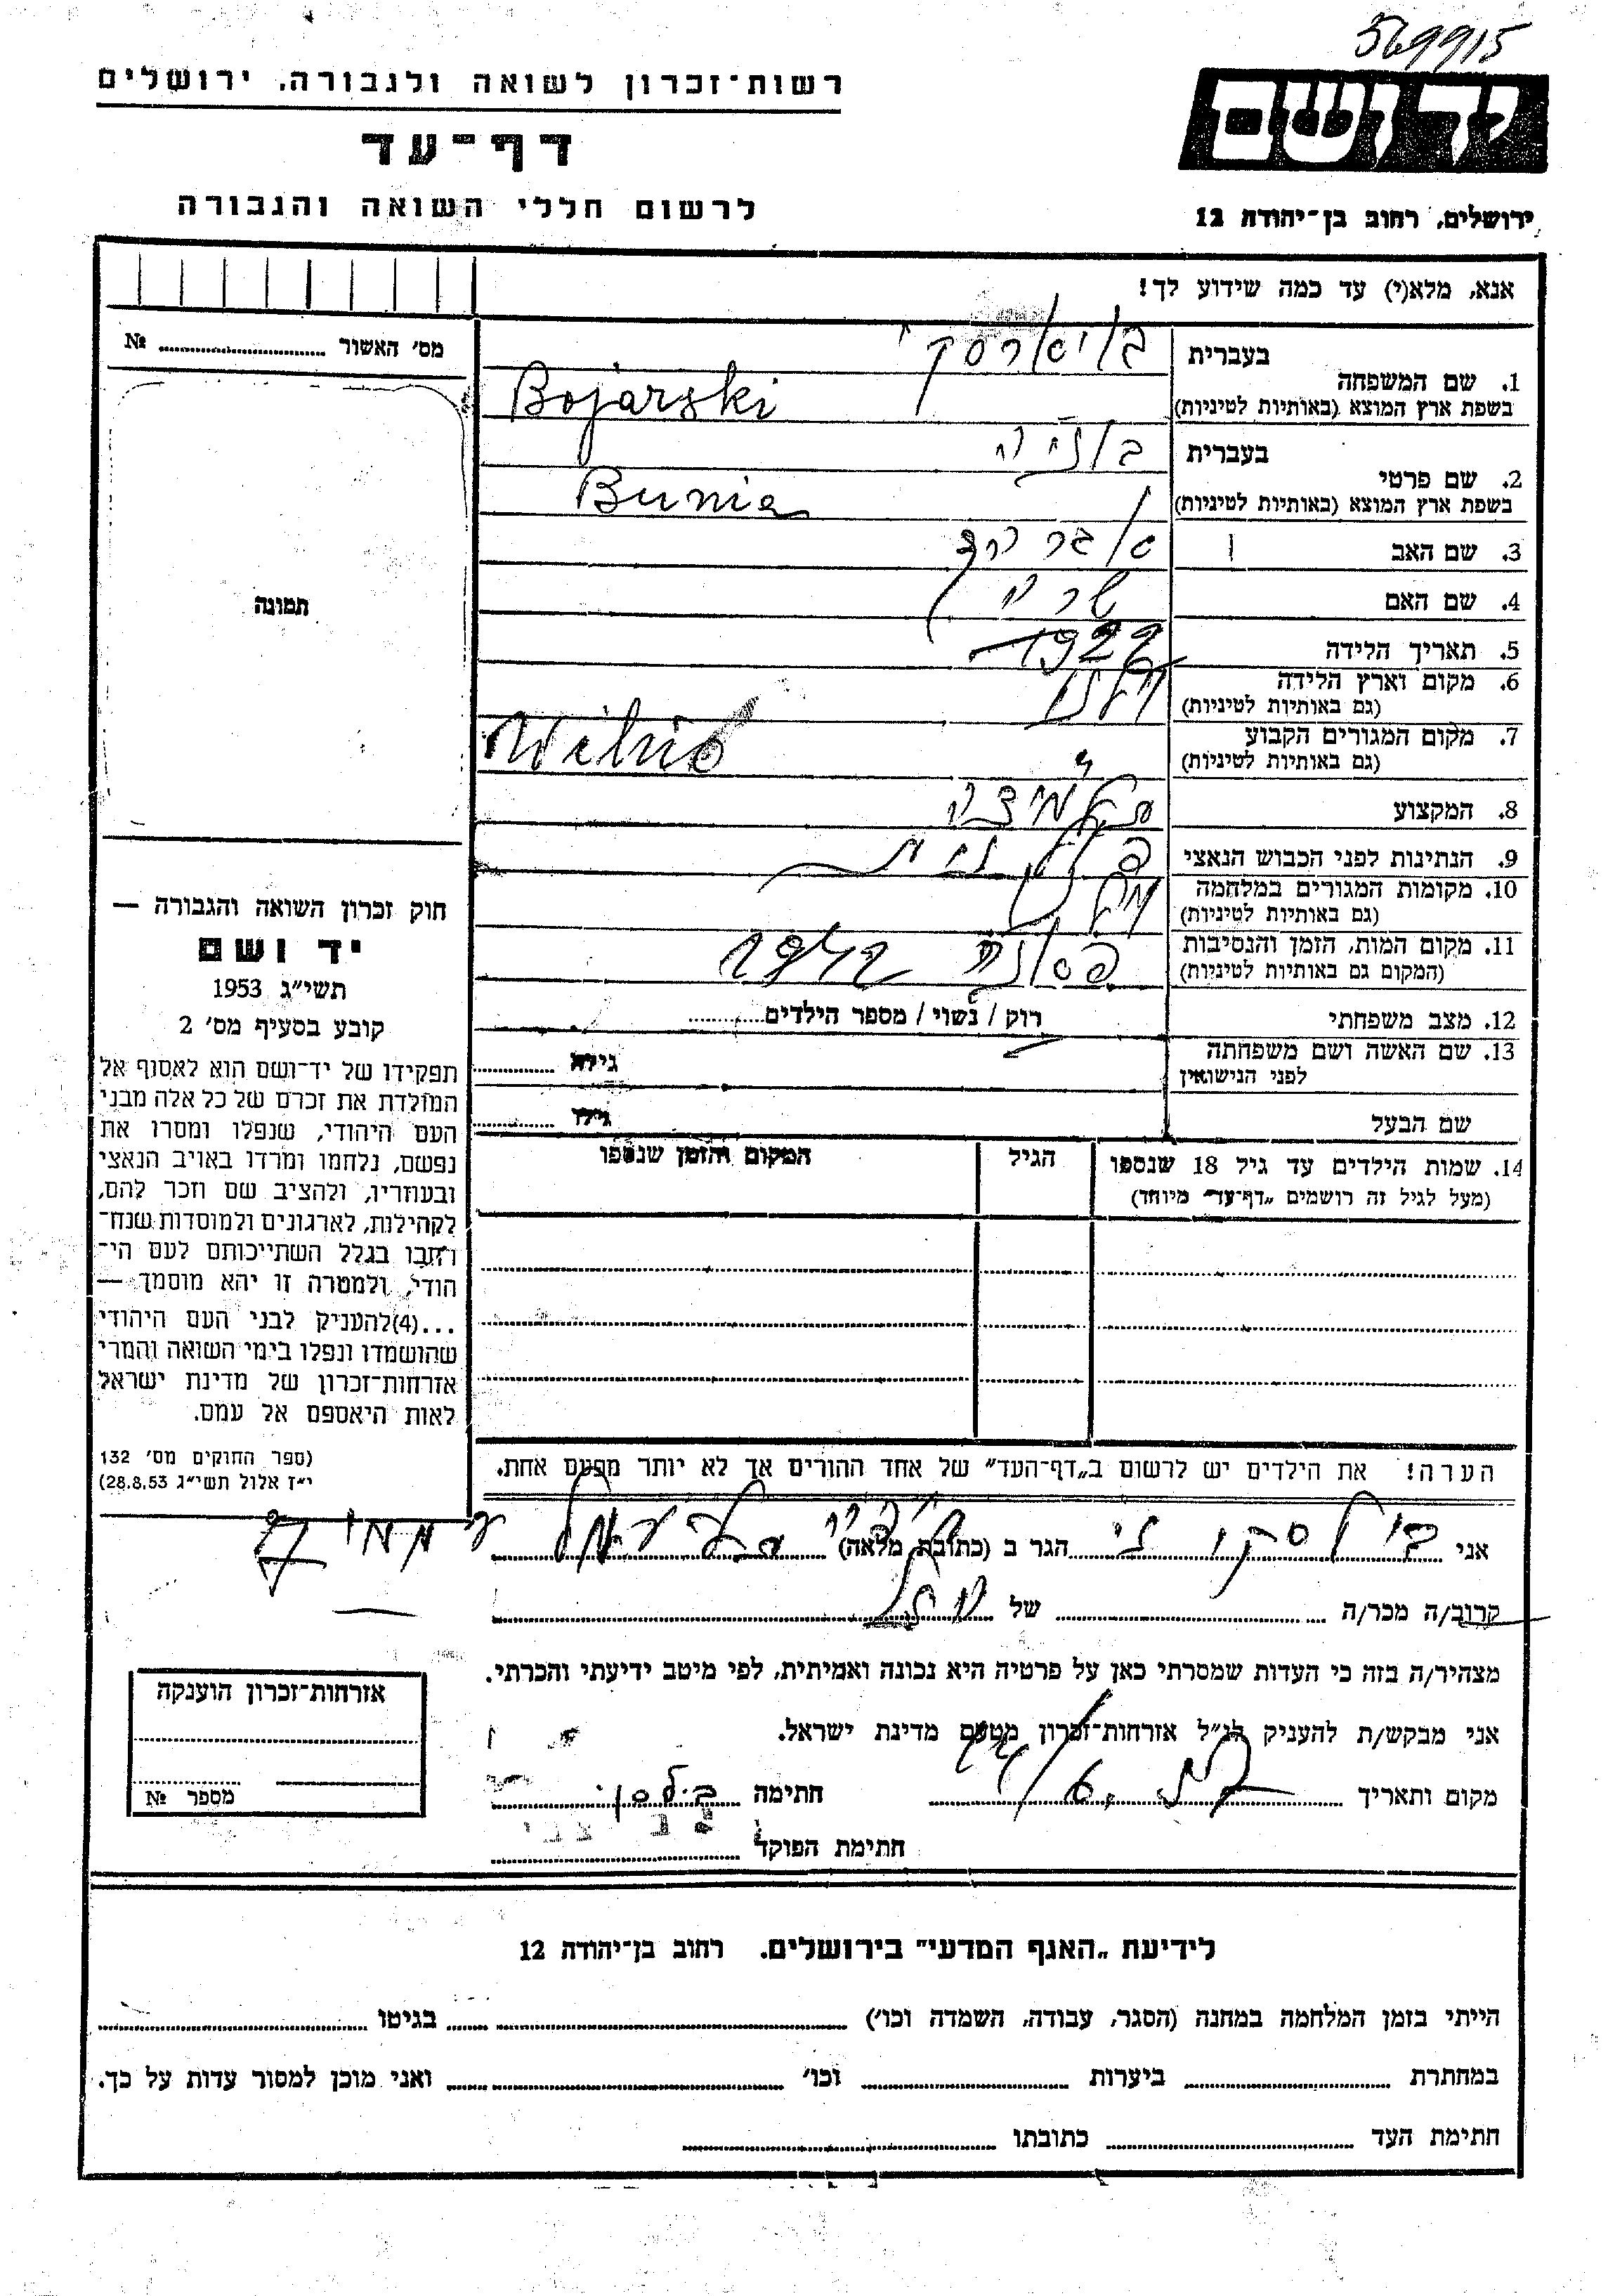 569915
יד ושם
רשות־זכרון לשואה ולגבורה, ירושלים
דף־עד
לרשום חללי השואה והגבורה
ירושלים, רחוב בן־יהודה 12
אנא, מלא(י) עד כמה שידוע לך!
מס׳ האשור № 
תמונה
1. שם המשפחה
בעברית בויארסקי
בשפת ארץ המוצא (באותיות לטיניות) Bojarski
2. שם פרטי
בעברית בוניה
בשפת ארץ המוצא (באותיות לטיניות) Bunia
3. שם האב
4. שם האם שרה
5. תאריך הלידה 1922
6. מקום וארץ הלידה וילנו
(גם באותיות לטיניות)
7. מקום המגורים הקבוע
(גם באותיות לטיניות) Wilno
8. המקצוע תלמידה
9. הנתינות לפני הכבוש הנאצי פולנית
10. מקומות המגורים במלחמה
(גם באותיות לטיניות)
11. מקום המות, הזמן והנסיבות
(המקום גם באותיות לטיניות)
12. מצב משפחתי רוק / נשוי / מספר הילדים
13. שם האשה ושם משפחתה
לפני הנישואין גילה
שם הבעל גילו
14. שמות הילדים עד גיל 18 שנספו
(מעל לגיל זה רושמים „דף־עד״ מיוחד)
הגיל
המקום והזמן שנספו
חוק זכרון השואה והגבורה —
יד ושם
תשי״ג 1953
קובע בסעיף מס׳ 2
תפקידו של יד־ושם הוא לאסוף אל
המולדת את זכרם של כל אלה מבני
העם היהודי, שנפלו ומסרו את
נפשם, נלחמו ומרדו באויב הנאצי
ובעוזריו, ולהציב שם וזכר להם,
לקהילות, לארגונים ולמוסדות שנח־
רבו בגלל השתייכותם לעם הי־
הודי, ולמטרה זו יהא מוסמך —
...(4) להעניק לבני העם היהודי
שהושמדו ונפלו בימי השואה והמרי
אזרחות־זכרון של מדינת ישראל
לאות היאספם אל עמם.
(ספר החוקים מס׳ 132
י״ז אלול תשי״ג 28.8.53)
הערה! את הילדים יש לרשום ב„דף־העד״ של אחד ההורים אך לא יותר מפעם אחת.
אני הגר ב (כתובת מלאה)
קרוב/ה מכר/ה של
מצהיר/ה בזה כי העדות שמסרתי כאן על פרטיה היא נכונה ואמיתית, לפי מיטב ידיעתי והכרתי.
אני מבקש/ת להעניק לנ״ל אזרחות־זכרון מטעם מדינת ישראל.
מקום ותאריך חתימה
חתימת הפוקד
אזרחות־זכרון הוענקה
מספר №
לידיעת „האגף המדעי״ בירושלים. רחוב בן־יהודה 12
הייתי בזמן המלחמה במחנה (הסגר, עבודה, השמדה וכו׳) בגיטו
במחתרת ביערות וכו׳ ואני מוכן למסור עדות על כך.
חתימת העד כתובתו